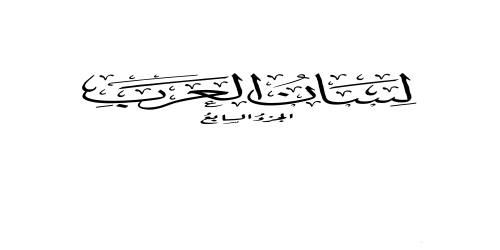 لسان العرب
الجزء السابع